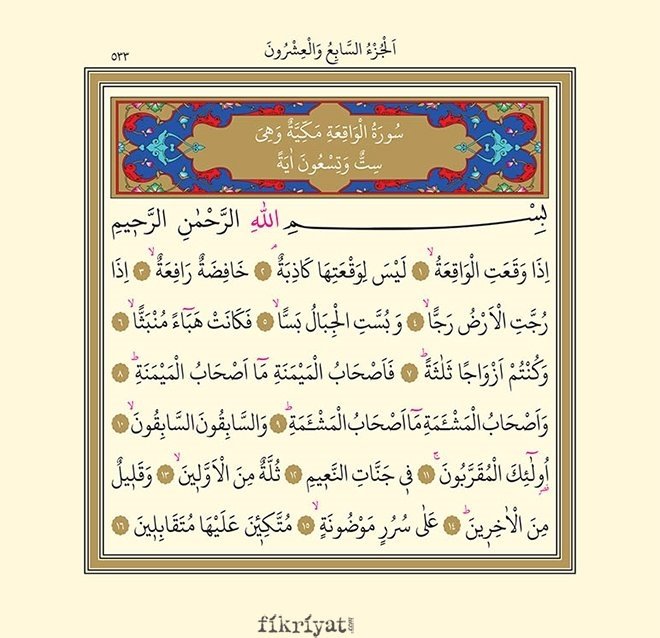 اَلْجُزْءُ السَّابِعُ وَالْعِشْرُونَ ٥٣٣
سُورَةُ الْوَاقِعَةِ مَكِّيَّةٌ وَهِىَ
سِتٌّ وَتِسْعُونَ اٰيَةً
بِسْمِ اللّٰهِ الرَّحْمٰنِ الرَّح۪يمِ
اِذَا وَقَعَتِ الْوَاقِعَةُۙ ﴿١﴾ لَيْسَ لِوَقْعَتِهَا كَاذِبَةٌۢ ﴿٢﴾ خَافِضَةٌ رَافِعَةٌۙ ﴿٣﴾ اِذَا
رُجَّتِ الْاَرْضُ رَجًّاۙ ﴿٤﴾ وَبُسَّتِ الْجِبَالُ بَسًّاۙ ﴿٥﴾ فَكَانَتْ هَبَٓاءً مُنْبَثًّاۙ ﴿٦﴾
وَكُنْتُمْ اَزْوَاجًا ثَلٰثَةًۜ ﴿٧﴾ فَاَصْحَابُ الْمَيْمَنَةِ مَٓا اَصْحَابُ الْمَيْمَنَةِۜ ﴿٨﴾
وَاَصْحَابُ الْمَشْـَٔمَةِ مَٓا اَصْحَابُ الْمَشْـَٔمَةِۜ ﴿٩﴾ وَالسَّابِقُونَ السَّابِقُونَۙ ﴿١٠﴾
اُو۬لٰٓئِكَ الْمُقَرَّبُونَۚ ﴿١١﴾ ف۪ي جَنَّاتِ النَّع۪يمِ ﴿١٢﴾ ثُلَّةٌ مِنَ الْاَوَّل۪ينَۙ ﴿١٣﴾ وَقَل۪يلٌ
مِنَ الْاٰخِر۪ينَۜ ﴿١٤﴾ عَلٰى سُرُرٍ مَوْضُونَةٍۙ ﴿١٥﴾ مُتَّكِـ۪ٔينَ عَلَيْهَا مُتَقَابِل۪ينَ ﴿١٦﴾
fikriyat.com